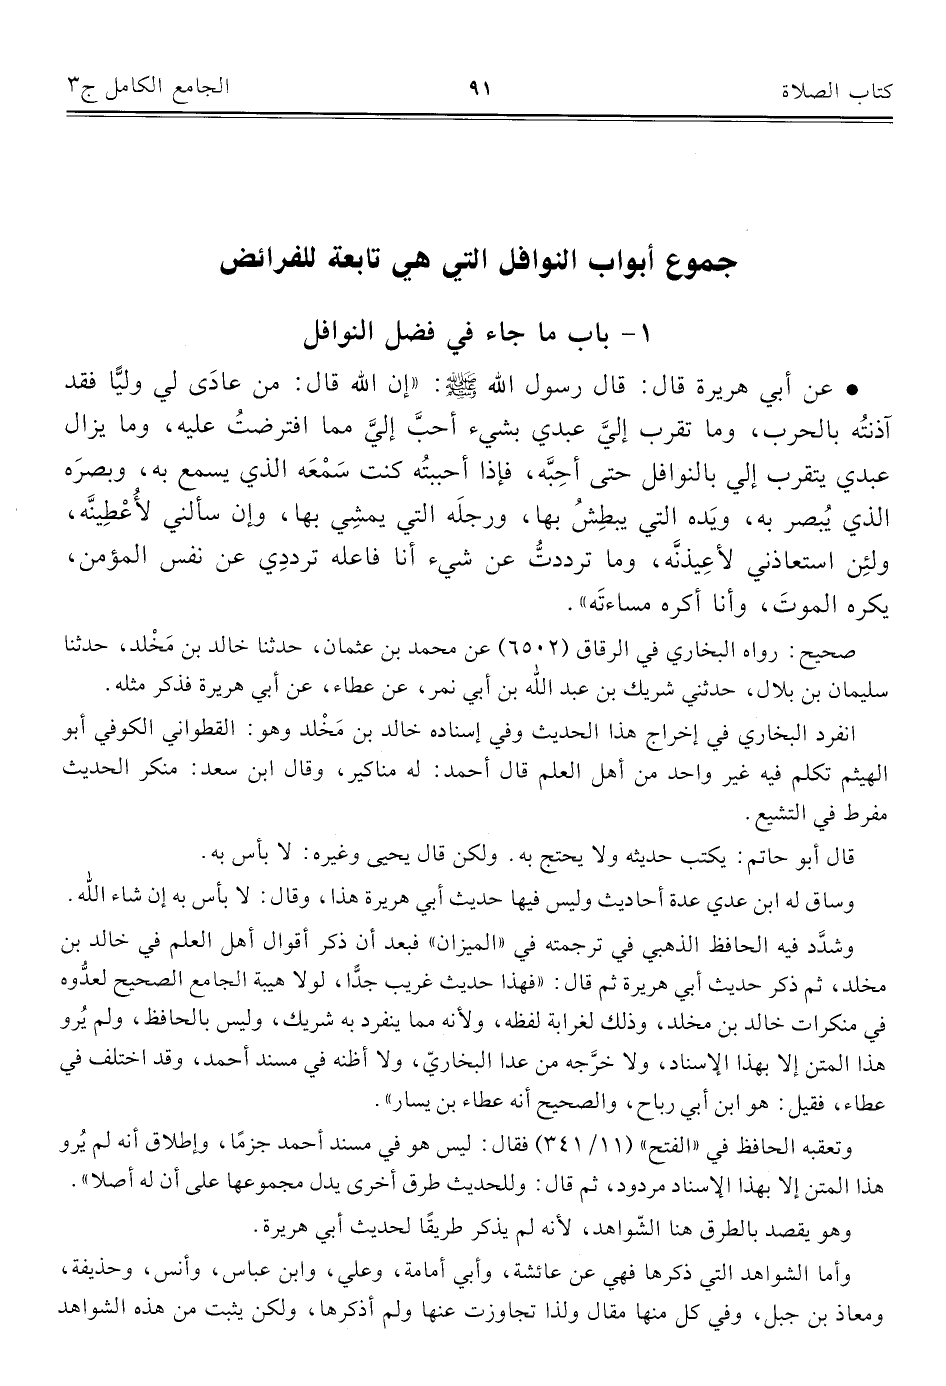 كتاب الصلاة ٩١ الجامع الكامل ج٣
جموع أبواب النوافل التي هي تابعة للفرائض
١- باب ما جاء في فضل النوافل
• عن أبي هريرة قال: قال رسول الله ﷺ: «إن الله قال: من عادَى لي وليًّا فقد
آذنتُه بالحرب، وما تقرب إليَّ عبدي بشيء أحبَّ إليَّ مما افترضتُ عليه، وما يزال
عبدي يتقرب إلي بالنوافل حتى أحِبَّه، فإذا أحببتُه كنت سَمْعَه الذي يسمع به، وبصرَه
الذي يُبصر به، ويَده التي يبطِشُ بها، ورجلَه التي يمشِي بها، وإن سألني لأُعْطِينَّه،
ولئِن استعاذني لأعِيذنَّه، وما ترددتُّ عن شيء أنا فاعله ترددِي عن نفس المؤمن،
يكره الموتَ، وأنا أكره مساءتَه».
صحيح: رواه البخاري في الرقاق (٦٥٠٢) عن محمد بن عثمان، حدثنا خالد بن مَخْلد، حدثنا
سليمان بن بلال، حدثني شريك بن عبد الله بن أبي نمر، عن عطاء، عن أبي هريرة فذكر مثله.
انفرد البخاري في إخراج هذا الحديث وفي إسناده خالد بن مَخْلد وهو: القطواني الكوفي أبو
الهيثم تكلم فيه غير واحد من أهل العلم قال أحمد: له مناكير، وقال ابن سعد: منكر الحديث
مفرط في التشيع.
قال أبو حاتم: يكتب حديثه ولا يحتج به. ولكن قال يحيى وغيره: لا بأس به.
وساق له ابن عدي عدة أحاديث وليس فيها حديث أبي هريرة هذا، وقال: لا بأس به إن شاء الله.
وشدَّد فيه الحافظ الذهبي في ترجمته في «الميزان» فبعد أن ذكر أقوال أهل العلم في خالد بن
مخلد، ثم ذكر حديث أبي هريرة ثم قال: «فهذا حديث غريب جدًّا، لولا هيبة الجامع الصحيح لعدُّوه
في منكرات خالد بن مخلد، وذلك لغرابة لفظه، ولأنه مما ينفرد به شريك، وليس بالحافظ، ولم يُرو
هذا المتن إلا بهذا الإسناد، ولا خرَّجه من عدا البخاريّ، ولا أظنه في مسند أحمد، وقد اختلف في
عطاء، فقيل: هو ابن أبي رباح، والصحيح أنه عطاء بن يسار».
وتعقبه الحافظ في «الفتح» (١١/ ٣٤١) فقال: ليس هو في مسند أحمد جزمًا، وإطلاق أنه لم يُرو
هذا المتن إلا بهذا الإسناد مردود، ثم قال: وللحديث طرق أخرى يدل مجموعها على أن له أصلا».
وهو يقصد بالطرق هنا الشّواهد، لأنه لم يذكر طريقًا لحديث أبي هريرة.
وأما الشواهد التي ذكرها فهي عن عائشة، وأبي أمامة، وعلي، وابن عباس، وأنس، وحذيفة،
ومعاذ بن جبل، وفي كل منها مقال ولذا تجاوزت عنها ولم أذكرها، ولكن يثبت من هذه الشواهد